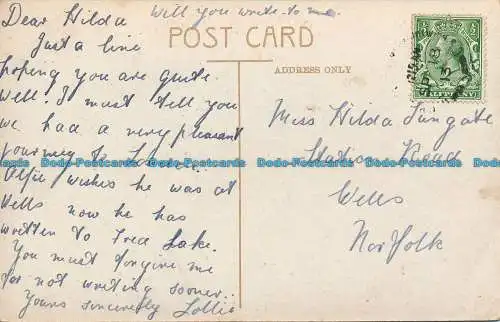 Dear Hilda
Will you write to me.
Just a line
hoping you are quite
well. I must tell you
we had a very pleasant
journey to
Alfie wishes he was at
Wells now he has
written to Fred Lake.
You must forgive me
for not writing sooner.
Yours sincerely Lottie
POST CARD
ADDRESS ONLY
HALFPENNY
Miss Hilda Sungate
Station Road
Wells
Norfolk
Dodo-Postcards Dodo-Postcards Dodo-Postcards Dodo-Postcards Dodo-Postcards